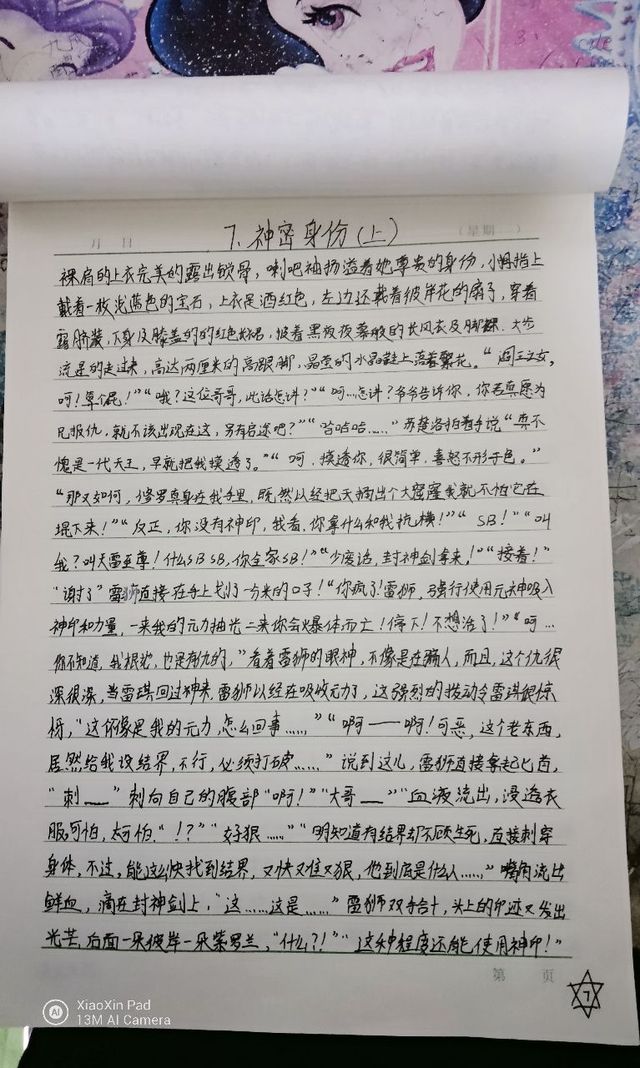 月 日
(星期二)
7.神密身份(上)
裸肩的上衣完美的露出锁骨,喇叭袖扬溢着她尊贵的身份,小拇指上
戴着一枚泛蓝色的宝石,上衣是酒红色,左边还戴着彼岸花的扇子,穿着
露脐装,下身及膝盖的的红色短裙,披着黑夜夜幕般的长风衣及脚裸.大步
流星的走过来,高达两厘米的高跟脚,晶莹的水晶鞋上落着繁花。“阎王之女,
呵!算个屁!”“哦?这位哥哥,此话怎讲?”“呵...怎讲?爷爷告诉你,你若真愿为
兄报仇,就不该出现在这,另有启迹吧?”“哈哈哈……”苏楚洛拍着手说“真不
愧是一代天王,早就把我摸透了。”“呵.摸透你,很简单.喜怒不形于色。”
“那又如何,修罗真身在我手里,既然以经把天捅出个大窟窿我就不怕它在
塌下来!”“反正,你没有神印,我看.你拿什么和我抗横!”“SB!”“叫
我?叫天雷至尊!什么SB SB,你全家SB!”“少废话,封神剑拿来!”“接着!”
“谢了”雷狮直接在手上划了一分米的口子!“你疯了!雷狮,强行使用元神吸入
神印和力量,一来我的元力抽光二来你会爆体而亡!停下!不想活了!”“呵...
你不知道,我根犯,也是有仇的,”看着雷狮的眼神,不像是在骗人,而且,这个仇很
深很深,当雷琪回过神来,雷狮以经在吸收元力了,这强烈的拨动令雷琪很惊
讶,“这你像是我的元力,怎么回事……”“啊——啊!可恶,这个老东西,
居然给我设结界,不行,必须打破……”说到这儿,雷狮直接拿起匕首,
“刺——”刺向自己的腹部“啊!”“大哥——”“血液流出,浸透衣
服可怕,太可怕.“!?”“好狠……”“明知道有结界却不顾生死,直接刺穿
身体,不过,能这么快找到结界,又快又准又狠,他到底是什么人……”嘴角流出
鲜血,滴在封神剑上,“这……这是……”雷狮双手合计,头上的印迹又发出
光芒,后面一朵彼岸一朵紫罗兰,“什么?!”“这种程度还能使用神印!”
第 页
7
XiaoXin Pad
AI 13M AI Camera